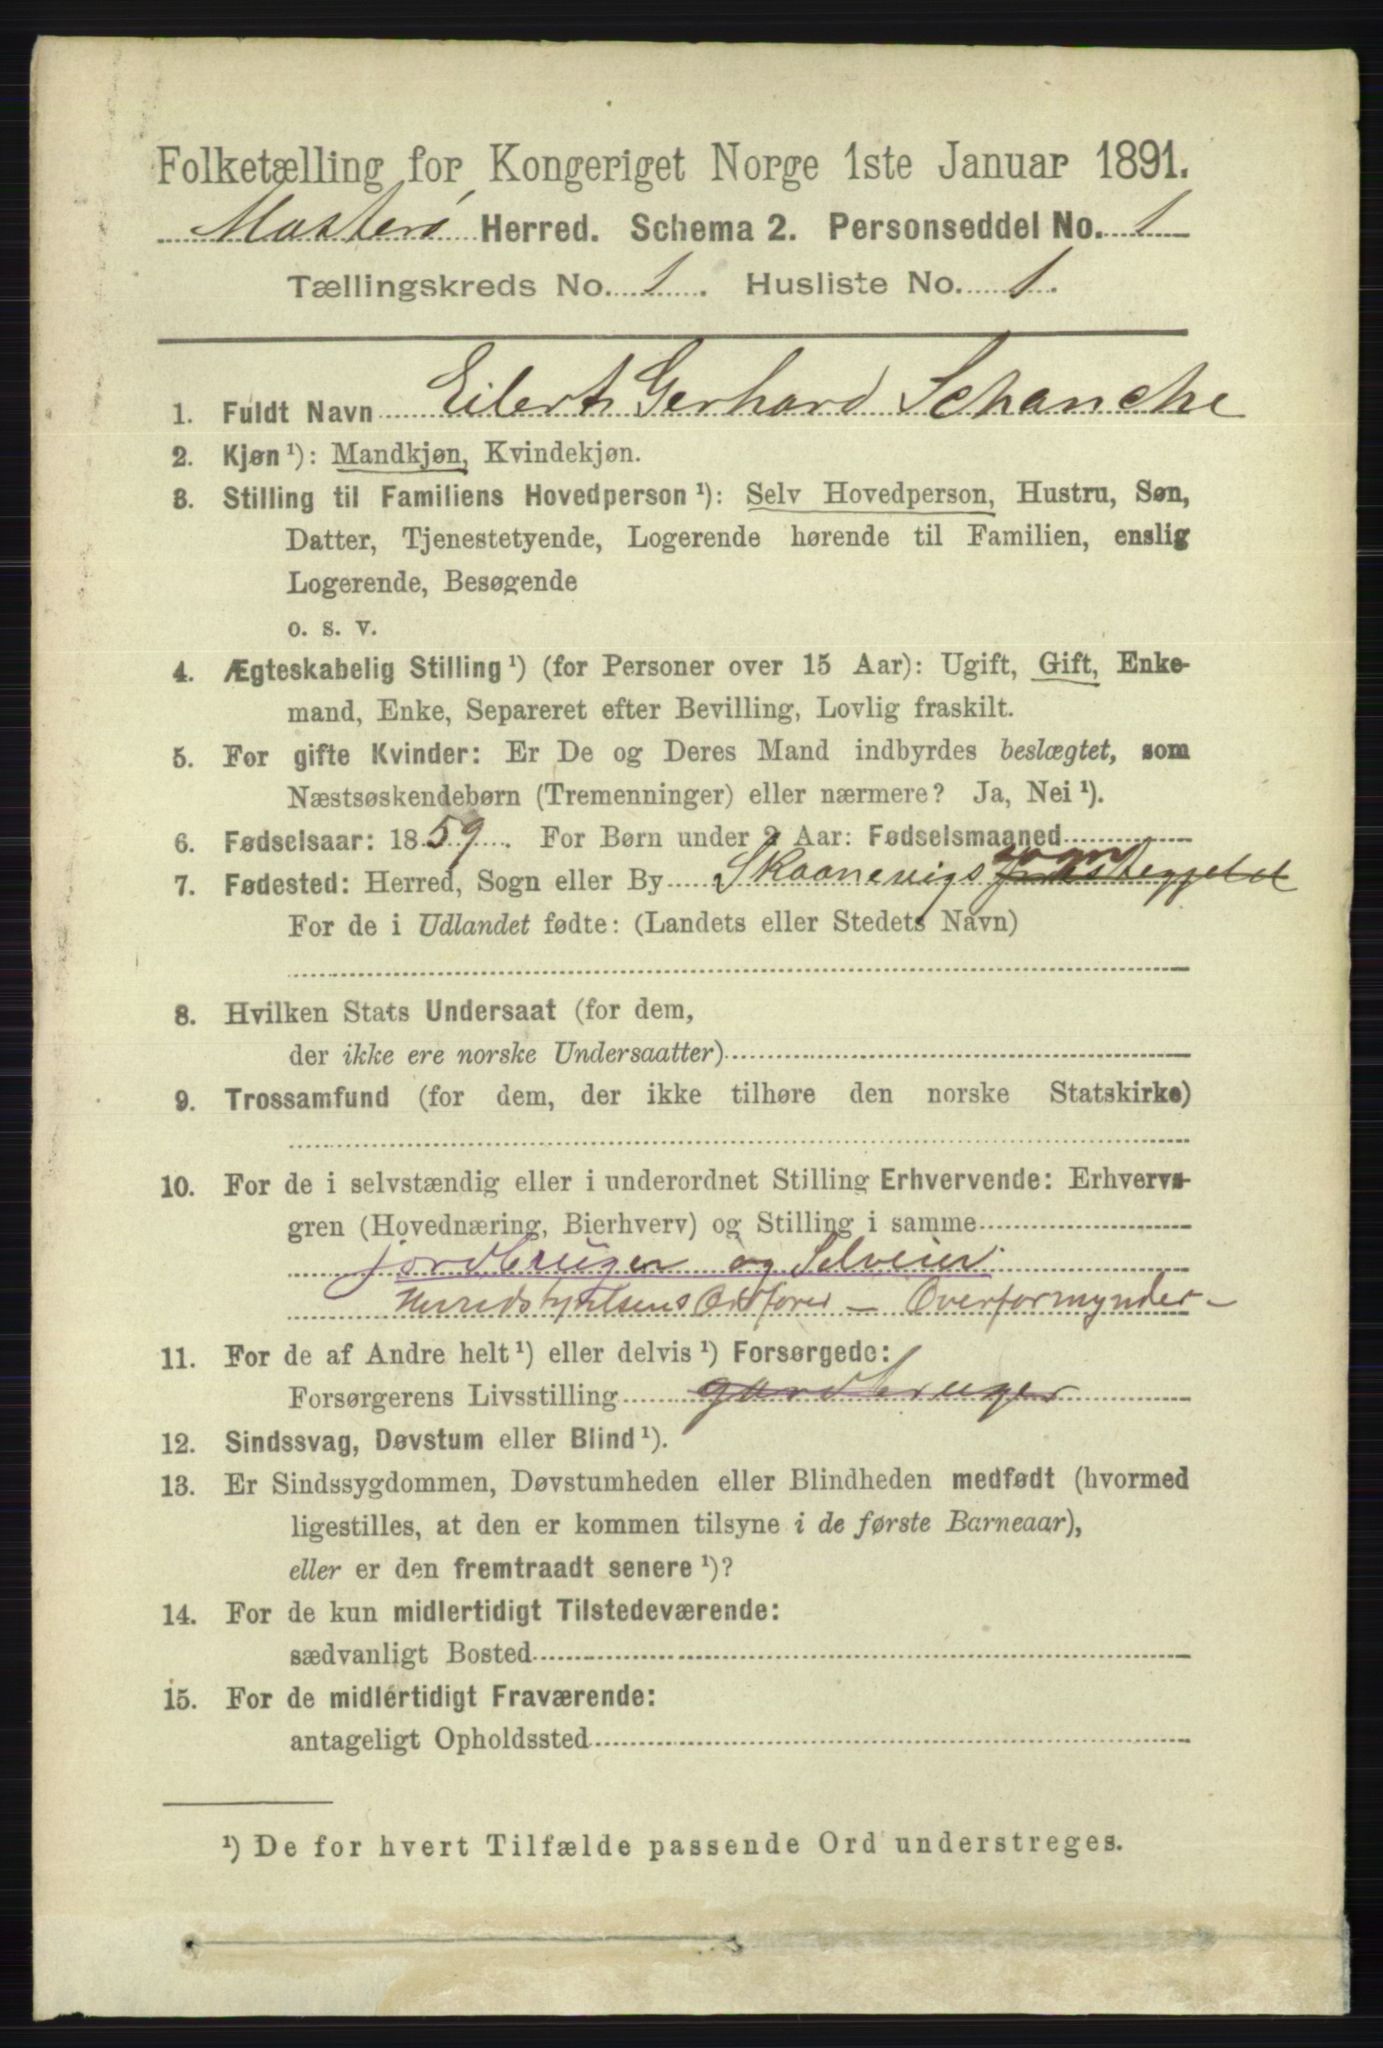 Folketælling for Kongeriget Norge 1ste Januar 1891.
Mosterø Herred. Schema 2. Personseddel No. 1
Tællingskreds No. 1. Husliste No. 1.
1. Fuldt Navn Eilert Gerhard Schanche
2. Kjøn ¹): Mandkjøn, Kvindekjøn.
3. Stilling til Familiens Hovedperson ¹): Selv Hovedperson, Hustru, Søn,
Datter, Tjenestetyende, Logerende hørende til Familien, enslig
Logerende, Besøgende
o. s. v.
4. Ægteskabelig Stilling ¹) (for Personer over 15 Aar): Ugift, Gift, Enke-
mand, Enke, Separeret efter Bevilling, Lovlig fraskilt.
5. For gifte Kvinder: Er De og Deres Mand indbyrdes beslægtet, som
Næstsøskendebørn (Tremenninger) eller nærmere? Ja, Nei ¹).
6. Fødselsaar: 1859. For Børn under 2 Aar: Fødselsmaaned
7. Fødested: Herred, Sogn eller By Skaanevigs præstegjeld sogn
For de i Udlandet fødte: (Landets eller Stedets Navn)
8. Hvilken Stats Undersaat (for dem,
der ikke ere norske Undersaatter)
9. Trossamfund (for dem, der ikke tilhøre den norske Statskirke)
10. For de i selvstændig eller i underordnet Stilling Erhvervende: Erhvervs-
gren (Hovednæring, Bierhverv) og Stilling i samme
jordbruger og Selveier
Herredstyrelsens Ordfører – Overformynder –
11. For de af Andre helt ¹) eller delvis ¹) Forsørgede:
Forsørgerens Livsstilling gardbruger
12. Sindssvag, Døvstum eller Blind ¹).
13. Er Sindssygdommen, Døvstumheden eller Blindheden medfødt (hvormed
ligestilles, at den er kommen tilsyne i de første Barneaar),
eller er den fremtraadt senere ¹)?
14. For de kun midlertidigt Tilstedeværende:
sædvanligt Bosted
15. For de midlertidigt Fraværende:
antageligt Opholdssted
¹) De for hvert Tilfælde passende Ord understreges.